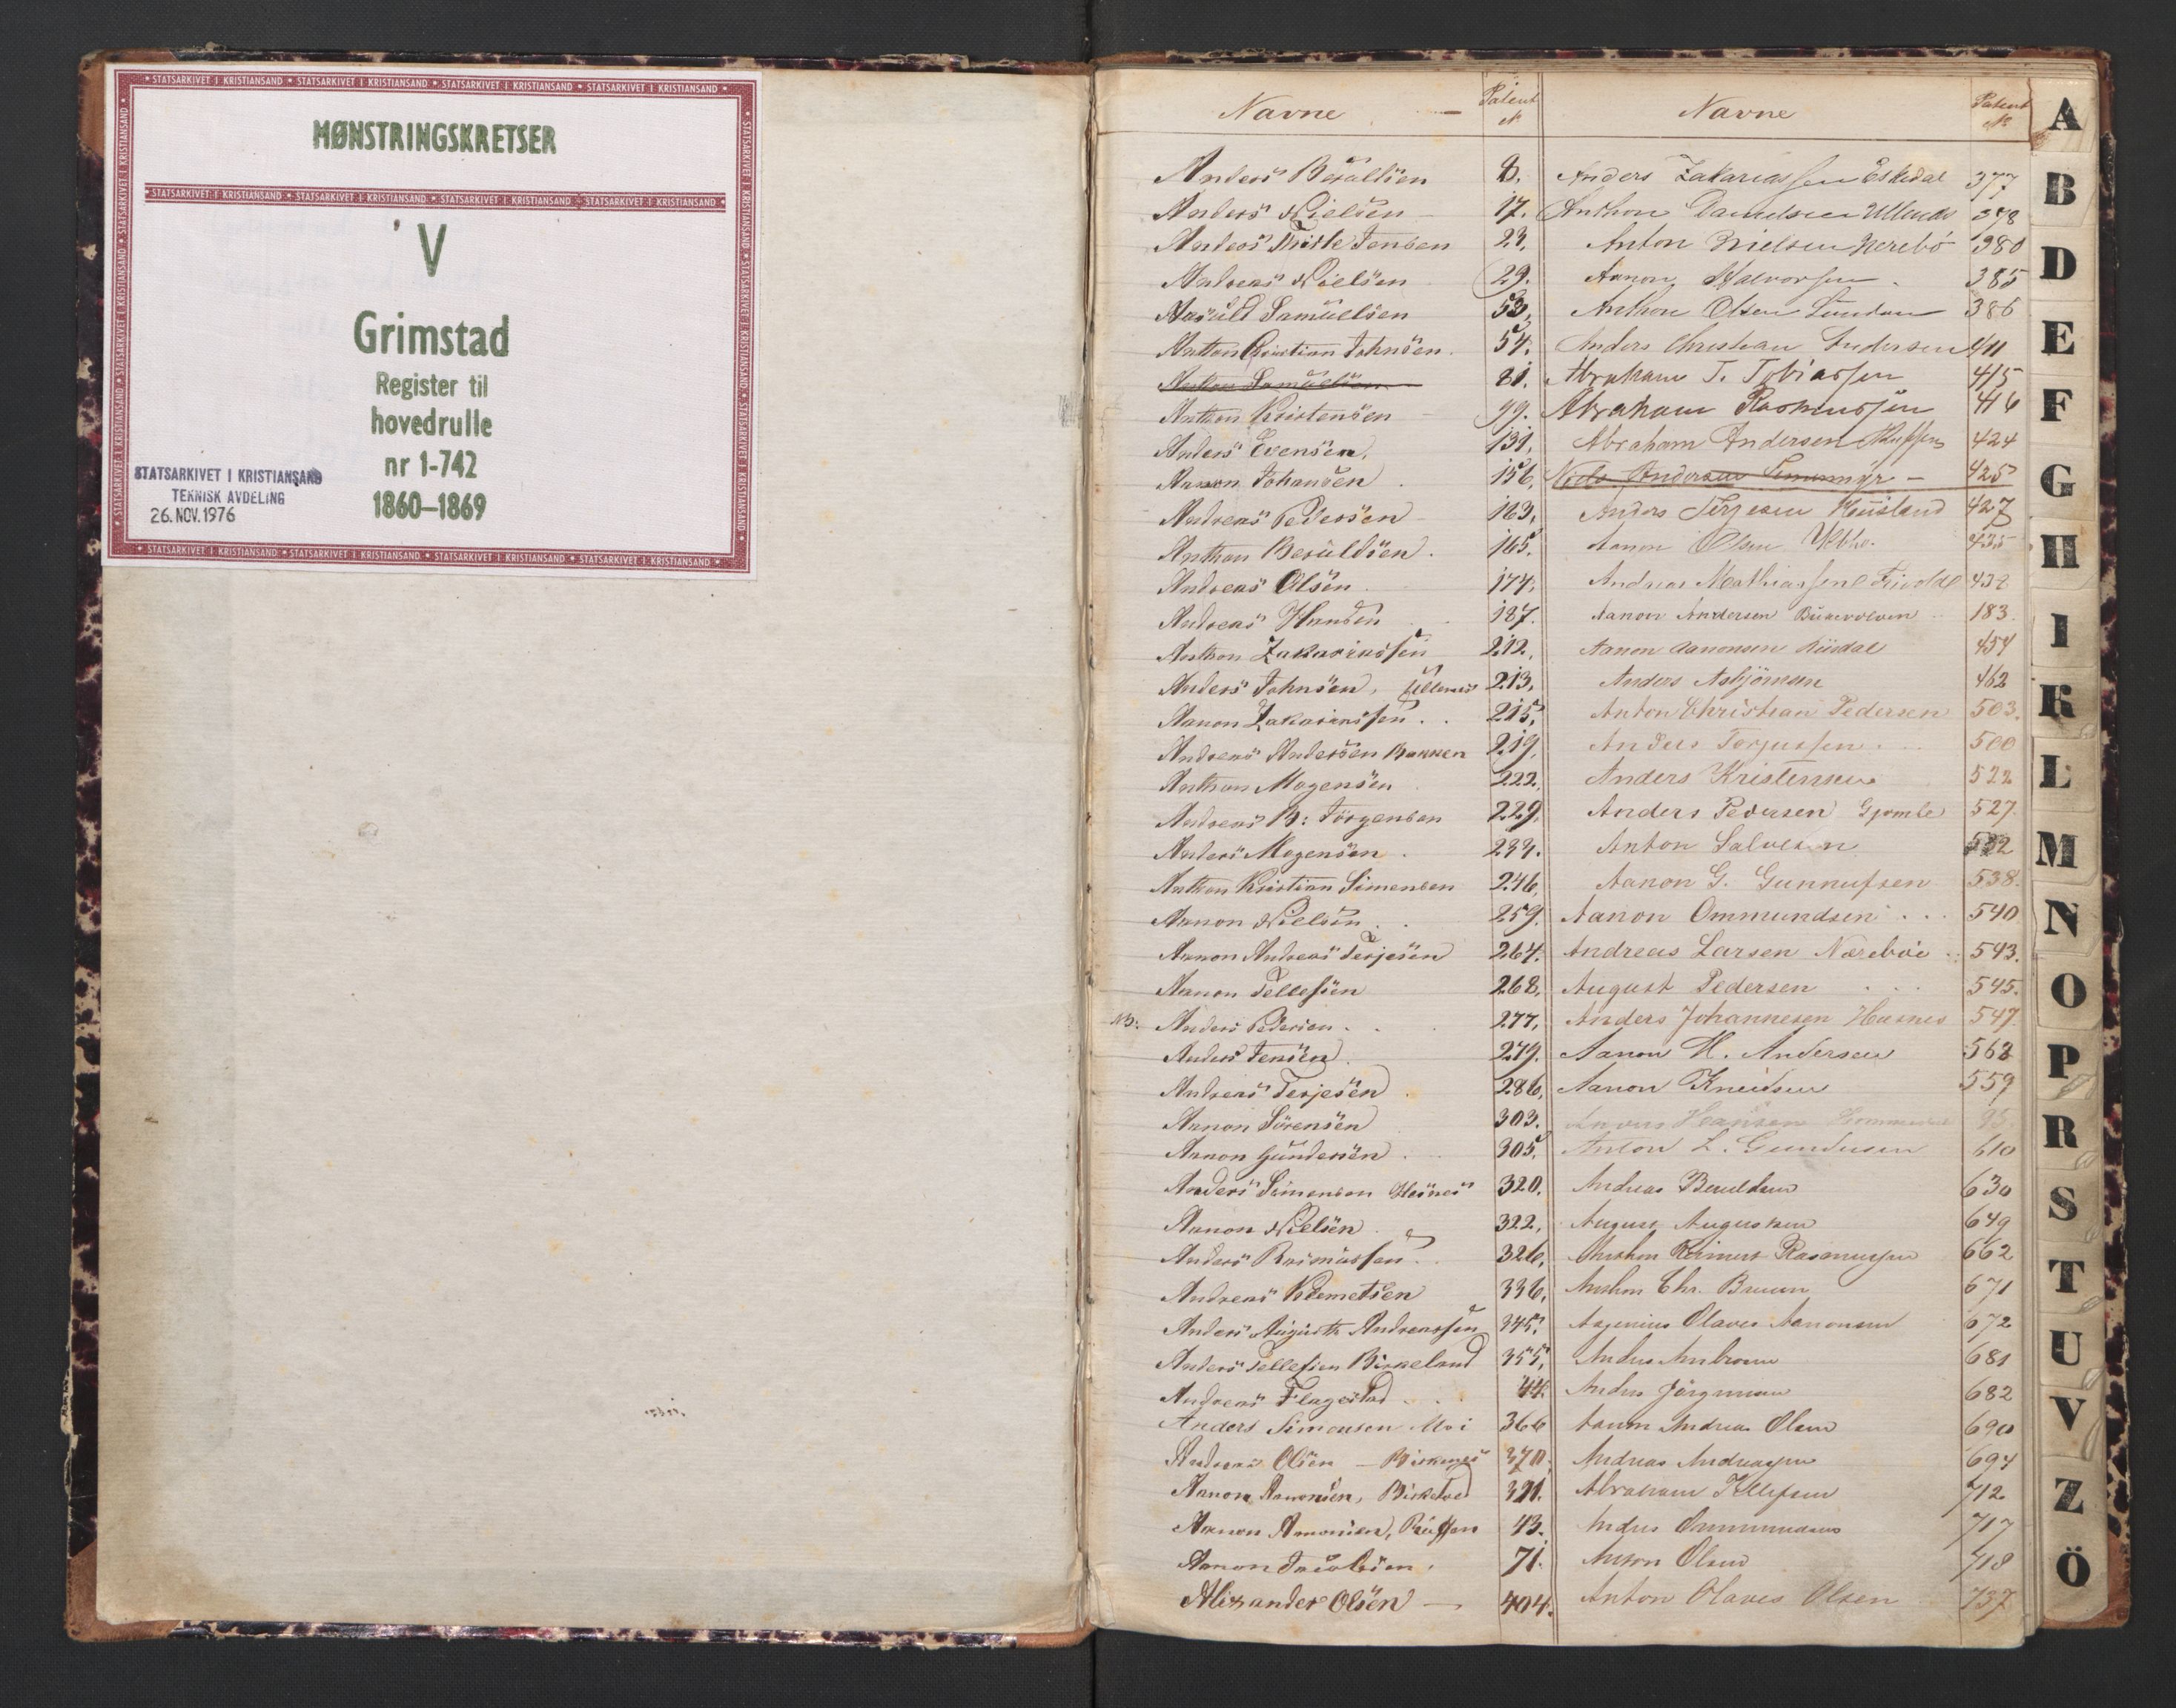 MØNSTRINGSKRETSER
V
Grimstad
Register til
hovedrulle
nr 1-742
1860–1869
STATSARKIVET I KRISTIANSAND
TEKNISK AVDELING
26. NOV. 1976
Navne Patent №
Anders Berulsen 8.
Anders Nielsen 17.
Anders Jensen 23.
Andreas Nielsen 29.
Aasuld Samuelsen 53,
Anthon Christian Johnsen. 54.
Anthon Samuelsen 81.
Anthon Kristensen 99.
Anders Evensen, 131,
Aanon Johansen 156,
Andreas Pedersen 163,
Anthon Beruldsen. 165.
Andreas Olsen 174.
Andreas Hansen 187.
Anthon Zakariassen 212,
Anders Johnsen, Ullenes 213,
Aanon Zakariassen 215,
Andreas Andersen Bakken 219,
Anthon Mogensen 222.
Andreas B: Jörgensen 229.
Anders Mogensen. 233.
Anthon Kristian Simensen 246,
Aanon Nielsen 259.
Aanon Andreas Terjesen 264.
Aanon Tellefsen 268,
NB: Anders Pedersen. 277,
Anders Jensen 279.
Andreas Terjesen 286,
Aanon Sörensen 303.
Aanon Gundersen. 305.
Anders Simensen Hesnes 320.
Aanon Nielsen 322,
Anders Rasmussen 326,
Andreas Klemetsen 336,
Anders Augusth Andreassen 345.
Anders Tellefsen Birkeland 355,
Andreas Flagestad 44.
Anders Simonsen Moi 366
Andreas Olsen — Birkenes 370.
Aanon Aanonsen, Birketved 391.
Aanon Amonsen, 43.
Aanon Jacobsen. 71.
Alexander Olsen — 404.
Navne Patent №
Anders Zakariassen Eskedal 377
Anthon Danielsen Ullenes 378
Anton Nielsen Nerebö 380
Aanon Halvorsen. 385
Anthon Olsen 386
Anders Christian Andersen 411
Abraham T. Tobiassen 415
Abraham Rasmussen 416
Abraham Andersen 424
Niels Andersen — 425
Anders Terjesen 427
Aanon Olsen 435
Andreas Mathiassen 432
Aanon Andersen 183
Aanon Aanonsen Riisdal 454
Anders Asbjörnsen 462
Anton Christian Pedersen 503.
Anders Torjussen. 500
Anders Kristensen 522
Anders Pedersen Gjomle 527.
Anton Salvesen 532
Aanon G. Gunnufsen 538.
Aanon Ommundsen 540
Andreas Larsen Nærebøe 543.
August Pedersen 545.
Anders Johannesen Hasnes 547
Aanon M. Andersen 562
Aanon Knudsen 559
Hansen 95
Anton L. Gundersen 610
Andreas Beruldsen 630
August Augustsen 649
Anthon Reinert Rasmussen 662
Anthon Chr. Bruun 671
Olaves Aanonsen 672
Anders Ambrosen 681
Anders Jörgensen 682
Aanon Andreas Olsen 690
Andreas Andreassen 694
Abraham Tellefsen 712
Anders Ommundsen 717
Anton Olsen 718
Anton Olaves Olsen 737
A
B
D
E
F
G
H
I
K
L
M
N
O
P
R
S
T
U
V
Z
Ö